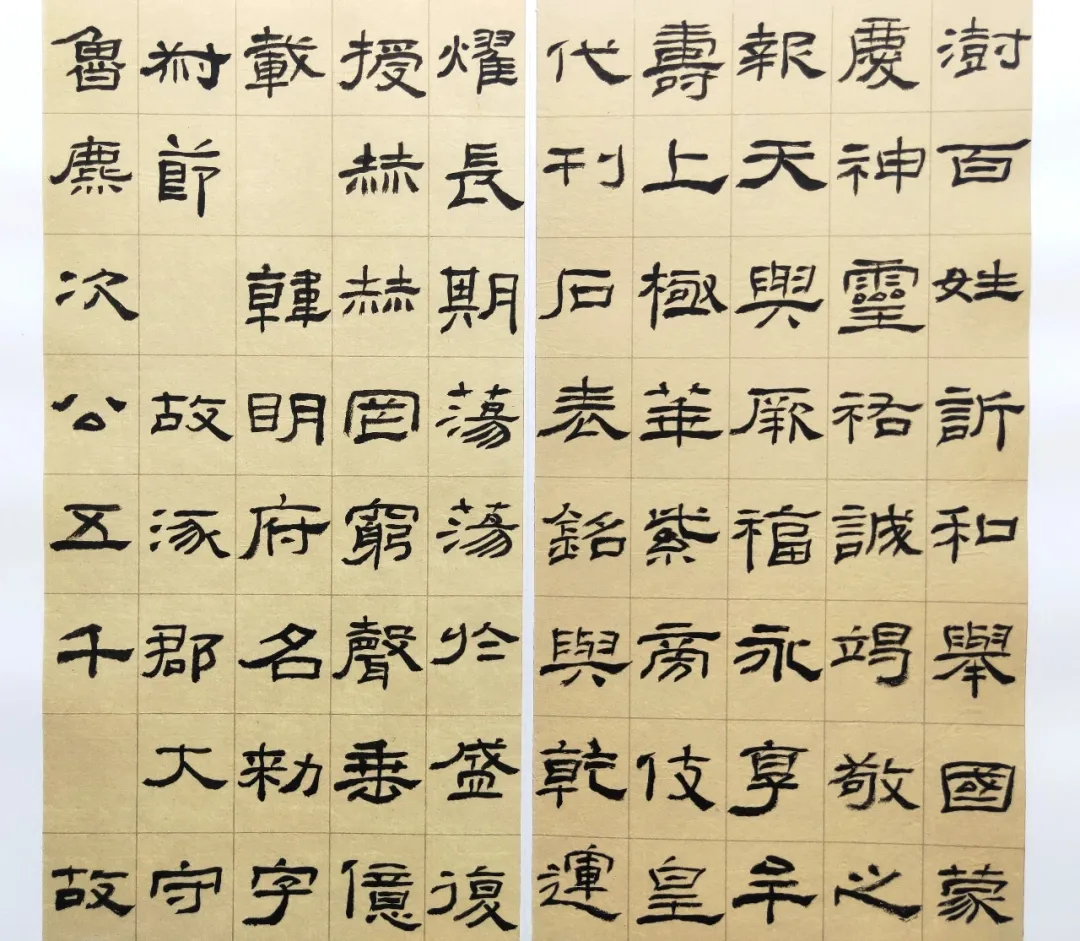 澍百姓訢和舉國蒙
慶神靈祐誠竭敬之
報天與厥福永享牟
壽上極華紫旁伎皇
代刊石表銘與乾運
燿長期蕩蕩於盛復
授赫赫罔窮聲垂億
載 韓明府名勑字
叔節 故涿郡大守
魯麃次公五千 故